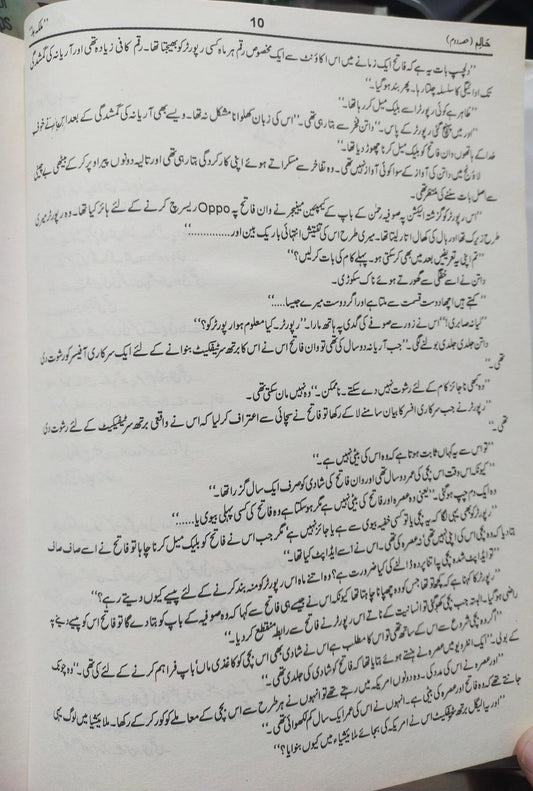 "ملکہ"
10
حَالِم (حصہ دوم)
"دلچسپ بات یہ ہے کہ فاتح ایک زمانے میں اس اکاؤنٹ سے ایک مخصوص رقم ہر ماہ کسی رپورٹر کو بھیجتا تھا۔ رقم کافی زیادہ تھی اور آریانہ کی گمشدگی
تک ادائیگی کا سلسلہ چلتا رہا۔ پھر بند ہو گیا۔"
"ظاہر ہے کوئی رپورٹر اسے بلیک میل کر رہا تھا۔"
"اور میں پہنچ گئی رپورٹر کے پاس۔" داتن فخر سے بتا رہی تھی۔ "اس کی زبان کھلوانا مشکل نہ تھا۔ ویسے بھی آریانہ کی گمشدگی کے بعد اس نے خوفِ
خدا کے ہاتھوں وان فاتح کو بلیک میل کرنا چھوڑ دیا تھا۔"
لاؤنج میں داتن کی آواز کے سوا کوئی آواز نہیں تھی۔ وہ تفاخر سے مسکراتے ہوئے اپنی کارکردگی بتا رہی تھی اور تالیہ دونوں پیر اوپر کر کے بیٹھی بے چینی
سے اصل بات سننے کی منتظر تھی۔
"اس رپورٹر کو گزشتہ الیکشن پہ صوفیہ رحمٰن کے باپ کے کیمپین مینیجر نے وان فاتح پہ Oppo ریسرچ کرنے کے لئے ہائر کیا تھا۔ وہ رپورٹر میری
طرح زیرک تھا اور بال کی کھال اتار لیتا تھا۔ میری طرح اس کی تفتیش انتہائی باریک بین اور............"
"تم اپنی یہ تعریفیں بعد میں بھی کر سکتی ہو۔ پہلے کام کی بات کر لیں؟"
داتن نے اسے خفگی سے گھورتے ہوئے ناک سکوڑی۔
"کہتے ہیں اچھا دوست قسمت سے ملتا ہے اور اگر دوست میرے جیسا....."
"لیانہ صابری!" اس نے زور سے صوفے کی گدی پہ ہاتھ مارا۔ "رپورٹر۔ کیا معلوم ہوا رپورٹر کو؟"
داتن جلدی جلدی بولنے لگی۔ "جب آریانہ دو سال کی تھی تو وان فاتح نے اس کا برتھ سرٹیفکیٹ بنوانے کے لئے ایک سرکاری آفیسر کو رشوت دی
تھی۔"
"وہ کبھی ناجائز کام کے لئے رشوت نہیں دے سکتے۔ ناممکن۔" وہ نہیں مان سکتی تھی۔
"رپورٹر نے جب سرکاری افسر کا بیان سامنے لا کے رکھا تو فاتح نے سچائی سے اعتراف کر لیا کہ اس نے واقعی برتھ سرٹیفکیٹ کے لئے رشوت دی
تھی۔"
"تو اس سے یہ کہاں ثابت ہوتا ہے کہ وہ اس کی بیٹی نہیں ہے۔"
"کیونکہ اس وقت اس بچی کی عمر دو سال تھی اور وان فاتح کی شادی کو صرف ایک سال گزرا تھا۔"
وہ ایک دم چپ ہو گئی۔ "یعنی وہ عصرہ اور فاتح کی بیٹی نہیں ہے مگر ہو سکتا ہے وہ فاتح کی کسی پہلی بیوی یا......"
"رپورٹر کو بھی یہی لگا کہ یہ بچی یا تو کسی خفیہ بیوی سے ہے یا جائز نہیں ہے مگر جب اس نے فاتح کو بلیک میل کرنا چاہا تو فاتح نے اسے صاف صاف
بتا دیا کہ وہ بچی اس کی اپنی نہیں تھی نہ عصرہ کی تھی۔ اس نے اسے ایڈاپٹ کیا تھا۔"
"تو ایڈاپٹ شدہ بچی پہ اتنا پردہ ڈالنے کی کیا ضرورت ہے؟ وہ اتنے ماہ اس رپورٹر کو منہ بند کرنے کے لئے پیسے کیوں دیتے رہے؟"
"رپورٹر کا کہنا ہے کہ کچھ تھا جس کو وہ چھپانا چاہتا تھا کیونکہ اس نے جیسے ہی فاتح سے کہا کہ وہ صوفیہ کے باپ کو بتا دے گا تو فاتح اس کو پیسے دینے پہ
راضی ہو گیا۔ البتہ جب بچی کھو گئی تو انسانیت کے ناتے اس رپورٹر نے فاتح سے رابطہ منقطع کر دیا۔"
"اگر وہ بچی شروع سے اس کے ساتھ تھی تو اس کا مطلب ہے اس نے شادی بھی اس بچی کو کاغذی ماں باپ فراہم کرنے کے لئے کی تھی۔" وہ چونک
کے بولی۔ "ایک انٹرویو میں عصرہ نے ہنستے ہوئے بتایا تھا کہ فاتح کو شادی کی جلدی تھی۔"
"اور عصرہ نے اس کی مدد کی۔ وہ دونوں امریکہ میں رہتے تھے تو انہوں نے ہر طرح سے اس بچی کے معاملے کو کور کر کے رکھا۔ ملائیشیا میں لوگ یہی
جانتے تھے کہ وہ فاتح اور عصرہ کی بیٹی ہے۔ انہوں نے اس کی عمر ایک سال کم لکھوائی تھی۔"
"اور یہ الیگل برتھ سرٹیفکیٹ اس نے امریکہ کی بجائے ملائیشیاء میں کیوں بنوایا؟"